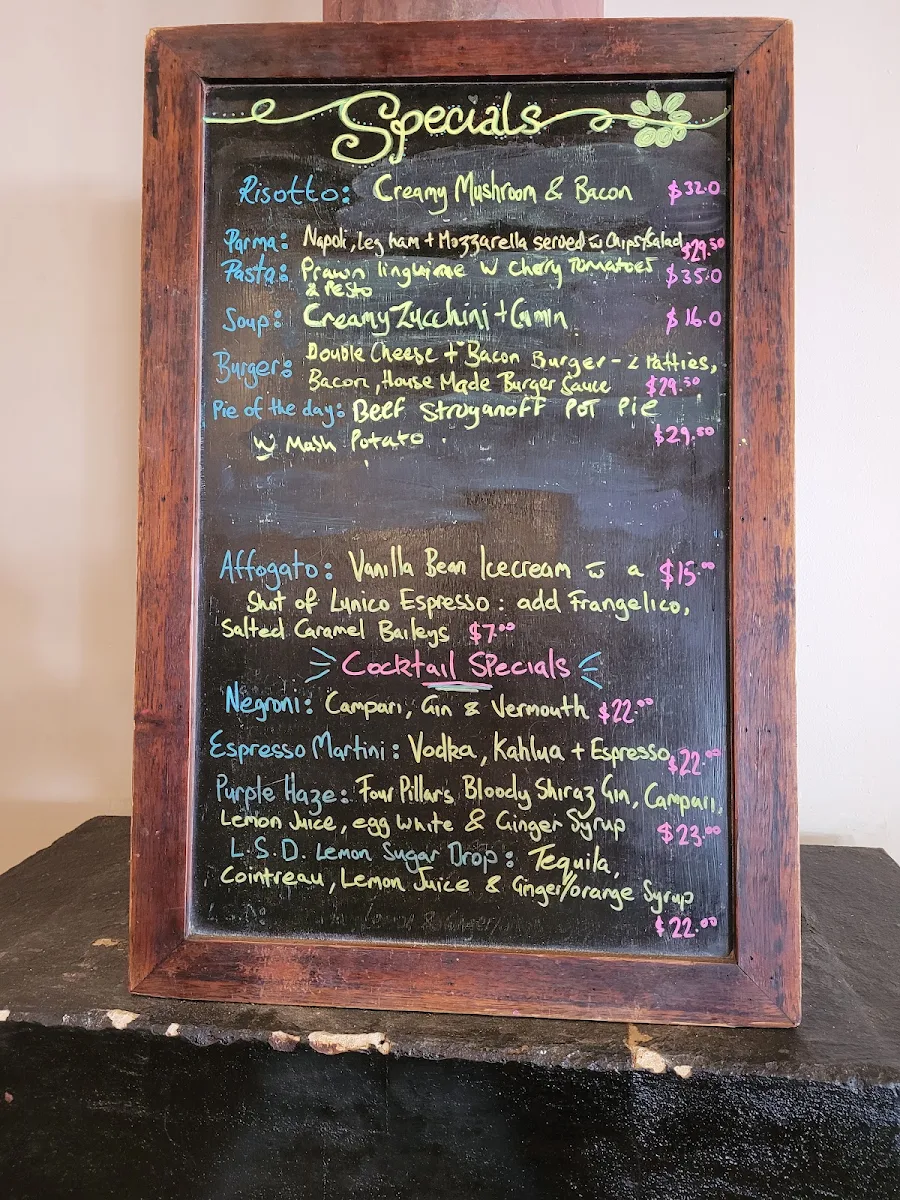 Specials
Risotto: Creamy Mushroom & Bacon $32.0
Parma: Napoli, Leg ham + Mozzarella served w Chips/Salad $29.50
Pasta: Prawn linguine w cherry Tomatoes $35.0
& Pesto
Soup: Creamy Zucchini + Cumin $16.0
Burger: Double Cheese + Bacon Burger - 2 Patties,
Bacon, House Made Burger Sauce $29.50
Pie of the day: Beef Stroganoff Pot Pie
w Mash Potato $29.50
Affogato: Vanilla Bean Icecream w a $15.00
Shot of Lunico Espresso: add Frangelico,
Salted Caramel Baileys $7.00
Cocktail Specials
Negroni: Campari, Gin & Vermouth $22.00
Espresso Martini: Vodka, Kahlua + Espresso $22.00
Purple Haze: Four Pillars Bloody Shiraz Gin, Campari,
Lemon Juice, egg white & Ginger Syrup $23.00
L.S.D. Lemon Sugar Drop: Tequila,
Cointreau, Lemon Juice & Ginger/orange Syrup
$22.00